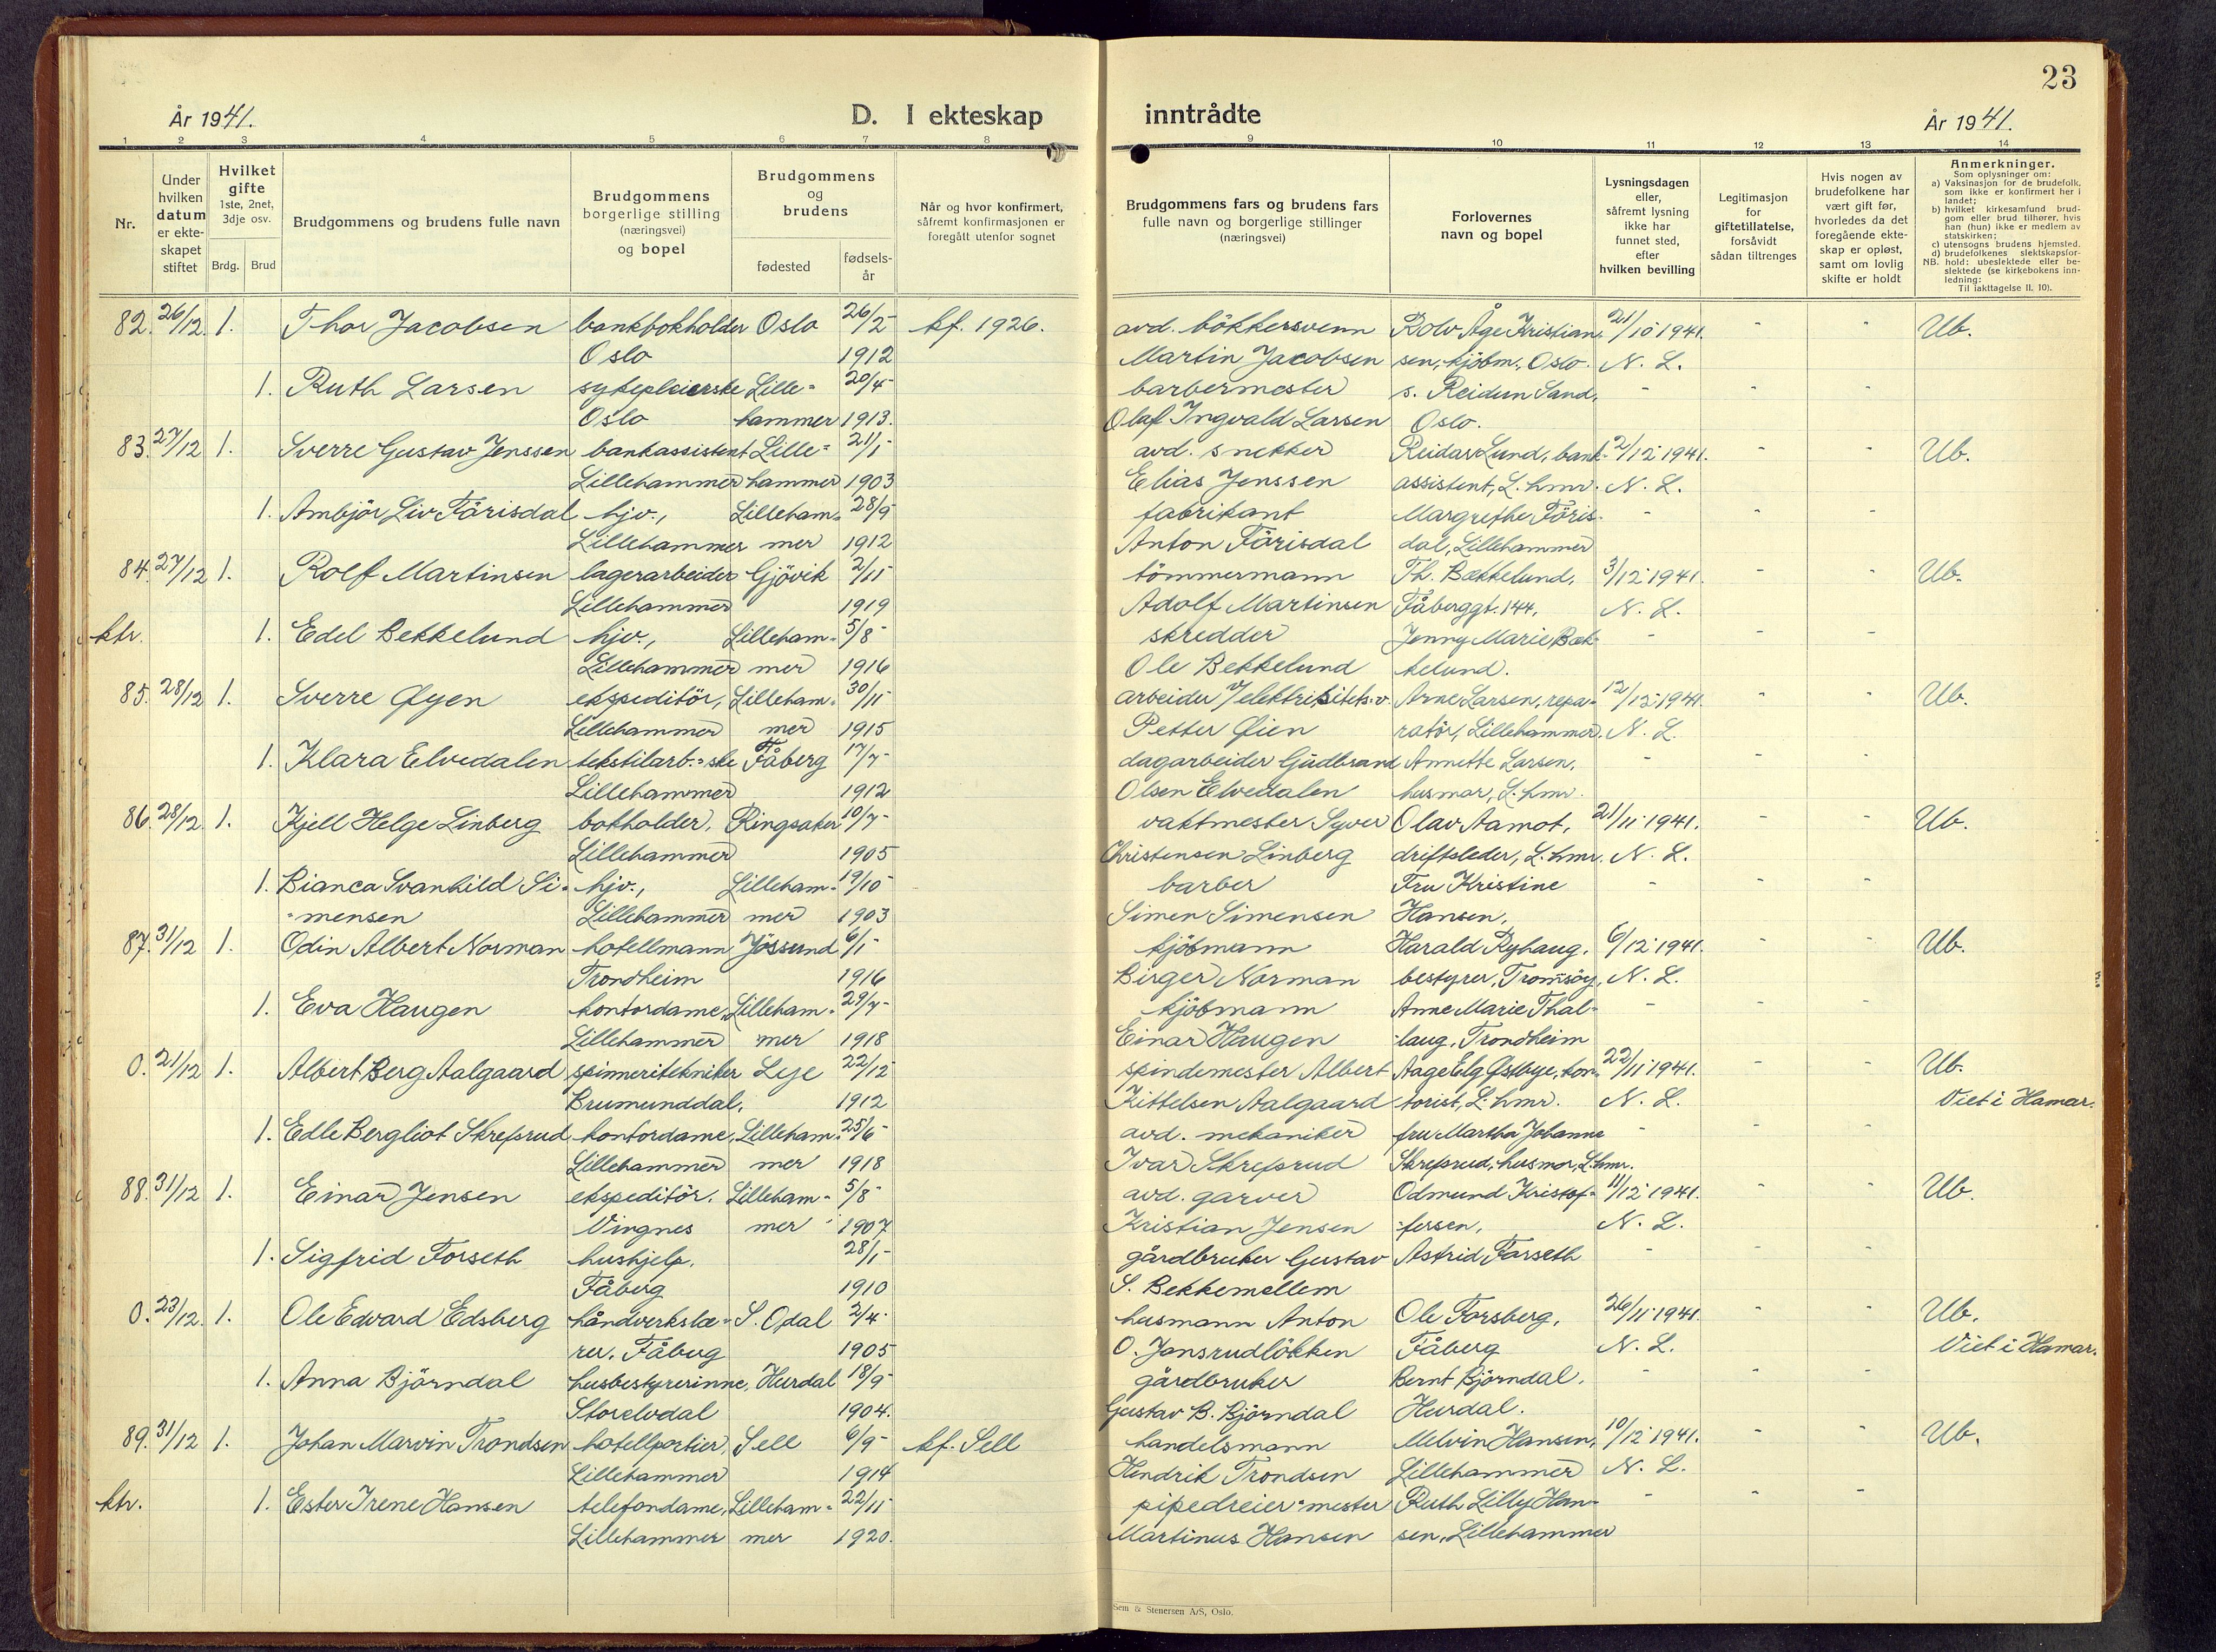 23
År 1941.
D. I ekteskap
inntrådte
År 1941.
1 2 3 4 5 6 7 8
9 10 11 12 13 14
Nr.
Under hvilken datum er ekteskapet stiftet
Hvilket gifte 1ste, 2net, 3dje osv.
Brdg. Brud
Brudgommens og brudens fulle navn
Brudgommens borgerlige stilling (næringsvei) og bopel
Brudgommens og brudens
fødested
fødsels-år
Når og hvor konfirmert, såfremt konfirmasjonen er foregått utenfor sognet
Brudgommens fars og brudens fars fulle navn og borgerlige stillinger (næringsvei)
Forlovernes navn og bopel
Lysningsdagen eller, såfremt lysning ikke har funnet sted, efter hvilken bevilling
Legitimasjon for giftetillatelse, forsåvidt sådan tiltrenges
Hvis nogen av brudefolkene har vært gift før, hvorledes da det foregående ekteskap er opløst, samt om lovlig skifte er holdt
Anmerkninger.
Som oplysninger om:
a) Vaksinasjon for de brudefolk, som ikke er konfirmert her i landet;
b) hvilket kirkesamfund brudgom eller brud tilhører, hvis han (hun) ikke er medlem av statskirken;
c) utensogns brudens hjemsted.
d) brudefolkenes slektskapsforhold: ubeslektede eller beslektede (se kirkebokens innledning:
NB.
Til iakttagelse II. 10).
82. 26/12 1. Thor Jacobsen bankbokholder Oslo 26/2 kf. 1926. avd. bökkersvenn Rolv Åge Kristian- 21/10 1941. - - Ub.
Oslo 1912 Martin Jacobsen sen, kjöbm., Oslo. N. L.
1. Ruth Larsen sykepleierske Lille- 20/4 barbermester s. Reidun Sand, - - -
Oslo hammer 1913. Olaf Ingvald Larsen Oslo.
83. 27/12 1. Sverre Gustav Jenssen bankassistent Lille- 21/1 avd. snekker Reidar Lund, bank- 2/12 1941. - - Ub.
Lillehammer hammer 1903 Elias Jenssen assistent, L.hmr. N. L.
1. Ambjör Liv Förisdal hjv., Lilleham- 28/9 fabrikant Margrethe Föris- - - -
Lillehammer mer 1912 Anton Förisdal dal, Lillehammer
84. 27/12 1. Rolf Martinsen lagerarbeider Gjövik 2/11 tömmermann Th. Bækkelund, 3/12 1941. - - Ub.
Lillehammer 1919 Adolf Martinsen Fåberggt. 144, N. L.
ktr. 1. Edel Bekkelund hjv., Lilleham- 5/8 skredder Jenny Marie Bæk- - - -
Lillehammer mer 1916 Ole Bekkelund kelund.
85. 28/12 1. Sverre Øyen ekspeditör, Lilleham- 30/11 arbeider v/elektrisitets.v. Arne Larsen, repa- 12/12 1941. - - Ub.
Lillehammer mer 1915 Petter Øien ratör, Lillehammer. N. L.
1. Klara Elvedalen tekstilarb.-ske Fåberg 17/7 dagarbeider Gudbrand Annette Larsen, - - -
Lillehammer 1912 Olsen Elvedalen husmor, L.hmr.
86. 28/12 1. Kjell Helge Linberg bokholder, Ringsaker 10/7 vaktmester Syver Olav Aamot, 21/11 1941. - - Ub.
Lillehammer 1905 Christensen Linberg driftsleder, L.hmr. N. L.
1. Bianca Svanhild Si- hjv., Lilleham- 19/10 barber Fru Kristine - - -
-mensen Lillehammer mer 1903 Simen Simensen Hansen,
87. 31/12 1. Odin Albert Norman hotellmann Jössund 6/1 kjöbmann Harald Ryhaug, 6/12 1941. - - Ub.
Trondheim 1916 Birger Norman bestyrer, Tromsöy, N. L.
1. Eva Haugen kontordame, Lilleham- 29/7 kjöbmann Anne Marie Thal- - - -
Lillehammer mer 1918 Einar Haugen laug, Trondheim
0. 21/12 1. Albert Berg Aalgaard spinneritekniker Lye 22/12 spindemester Albert Aage Elg Østbye, kon- 22/11 1941. - - Ub.
Brumunddal, 1912 Kittelsen Aalgaard torist, L.hmr. N. L. Viet i Hamar.
1. Edle Bergliot Skrefsrud kontordame, Lilleham- 25/6 avd. mekaniker fru Martha Johanne - - -
Lillehammer mer 1918 Ivar Skrefsrud Skrefsrud, husmor, L.hmr.
88. 31/12 1. Einar Jensen ekspeditör. Lilleham- 5/8 avd. garver Odmund Kristof- 11/12 1941. - - Ub.
Vingnes mer 1907 Kristian Jensen fersen, N. L.
1. Sigfrid Forseth hushjelp. 28/1 gårdbruker Gustav Astrid Forseth - - -
Fåberg 1910 S. Bekkemellem
0. 23/12. 1. Ole Edvard Edsberg håndverkslæ- S. Odal 2/4 husmann Anton Ole Forsberg, 26/11 1941. - - Ub.
rer. Fåberg 1905 O. Jansrudlökken Fåberg N. L. Viet i Hamar.
1. Anna Björndal husbestyrerinne, Hurdal 18/9 gårdbruker Bernt Björndal, - - -
Storelvdal 1904. Gustav B. Björndal Hurdal.
89. 31/12 1. Johan Marvin Trondsen hotellportier, Sell 6/9 kf. Sell handelsmann Melvin Hansen, 10/12 1941. - - Ub.
Lillehammer 1914 Hendrik Trondsen Lillehammer N. L.
ktr. 1. Ester Irene Hansen telefondame, Lilleham- 22/11 pipedreier-mester Ruth Lilly Han- - - -
Lillehammer mer 1920. Martinus Hansen sen, Lillehammer
Sem & Stenersen A/S, Oslo.